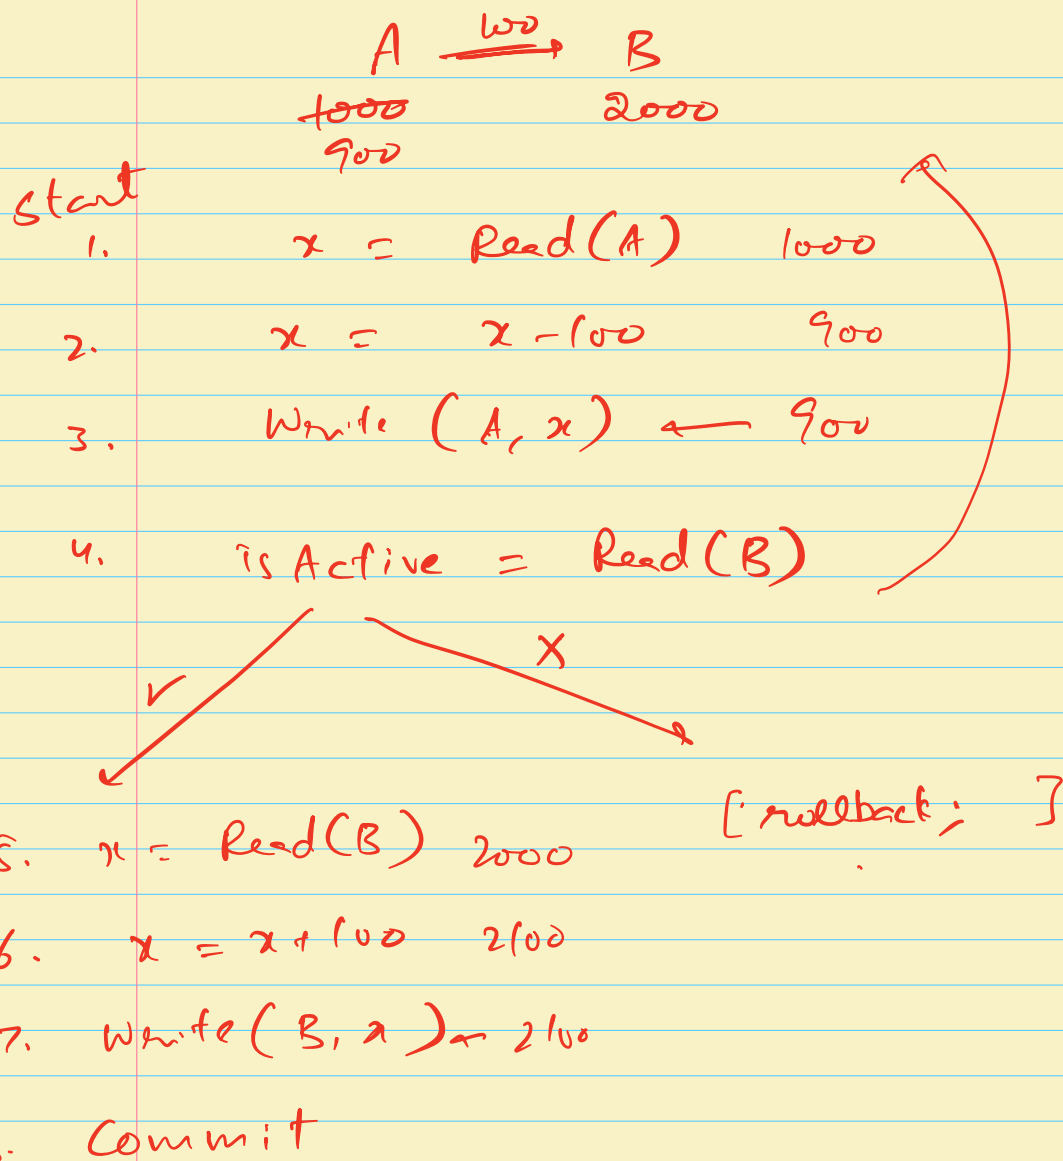 A 100 B
1000 2000
900
start
1. x = Read(A) 1000
2. x = x - 100 900
3. Write (A, x) ← 900
4. is Active = Read(B)
✓ X
[ rollback; ]
5. x = Read(B) 2000
6. x = x + 100 2100
7. Write(B, x) ← 2100
Commit